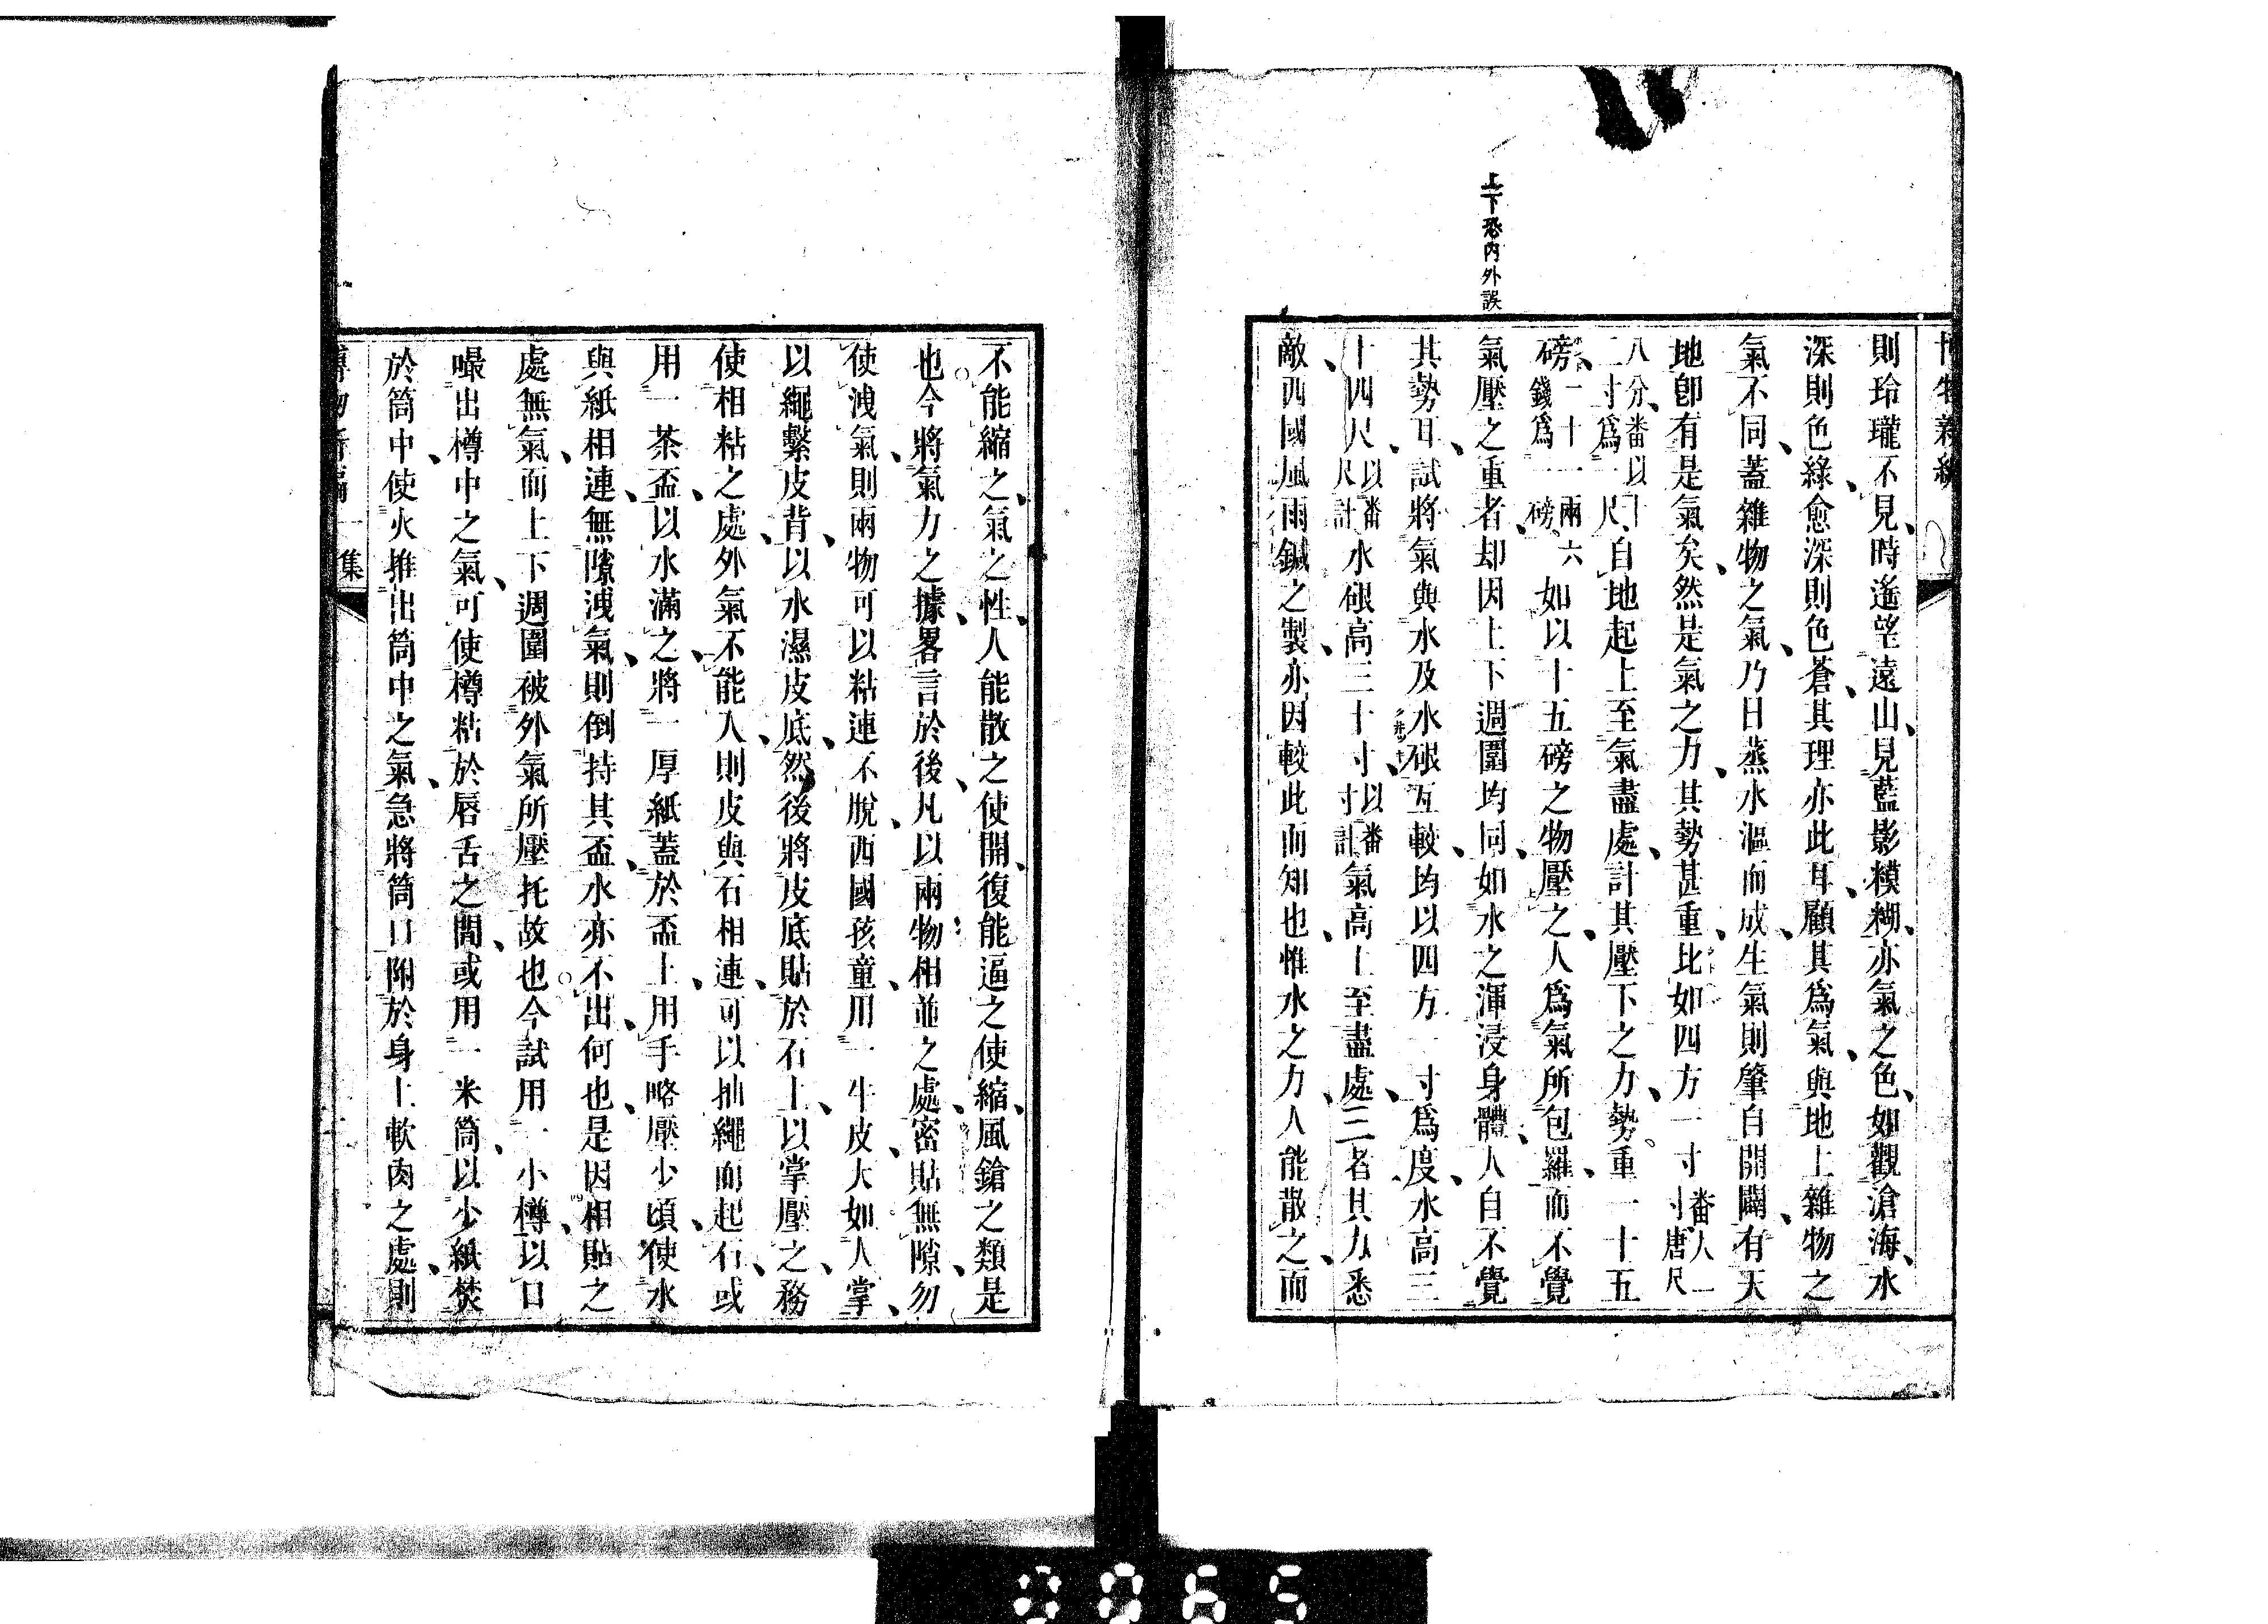 博物新編
上下恐內外誤
則玲瓏不見、時遙望遠山、見藍影模糊、亦氣之色、如觀滄海、水
深則色綠、愈深則色蒼、其理亦此耳、顧其爲氣、與地上雜物之
氣不同、蓋雜物之氣、乃日蒸水漚而成、生氣則肇自開闢、有天
地卽有是氣矣、然是氣之力、其勢甚重、比如四方一寸番人一寸唐尺
八分、番以十二寸爲一尺、自地起上至氣盡處、計其壓下之力、勢重一十五
磅、一十一兩六錢爲一磅、如以十五磅之物壓之、人爲氣所包羅、而不覺
氣壓之重者、却因上下週圍均同、如水之渾浸身體、人自不覺
其勢耳、試將氣與水及水硍互較、均以四方一寸爲度、水高三
十四尺、以番尺計水硍高三十寸、以番寸計氣高上至盡處、三者其力悉
敵、西國風雨鍼之製、亦因較此而知也、惟水之力、人能散之、而
不能縮之、氣之性、人能散之使開、復能逼之使縮、風鎗之類是
也。今將氣力之據、畧言於後、凡以兩物相並之處、密貼無隙、勿
使洩氣、則兩物可以粘連不脫、西國孩童、用一牛皮、大如人掌、
以繩繫皮背、以水濕皮底、然後將皮底貼於石上、以掌壓之、務
使相粘之處、外氣不能入、則皮與石相連、可以抽繩而起石、或
用一茶盃、以水滿之、將一厚紙蓋於盃上、用手略壓少頃、使水
與紙相連、無隙洩氣、則倒持其盃、水亦不出、何也、是因相貼之
處無氣、而上下週圍被外氣所壓托故也。今試用一小樽、以口
嘬出樽中之氣、可使樽粘於唇舌之間、或用一米筒、以少紙焚
於筒中、使火推出筒中之氣、急將筒口附於身上軟肉之處、則
博物新編 一集
0065